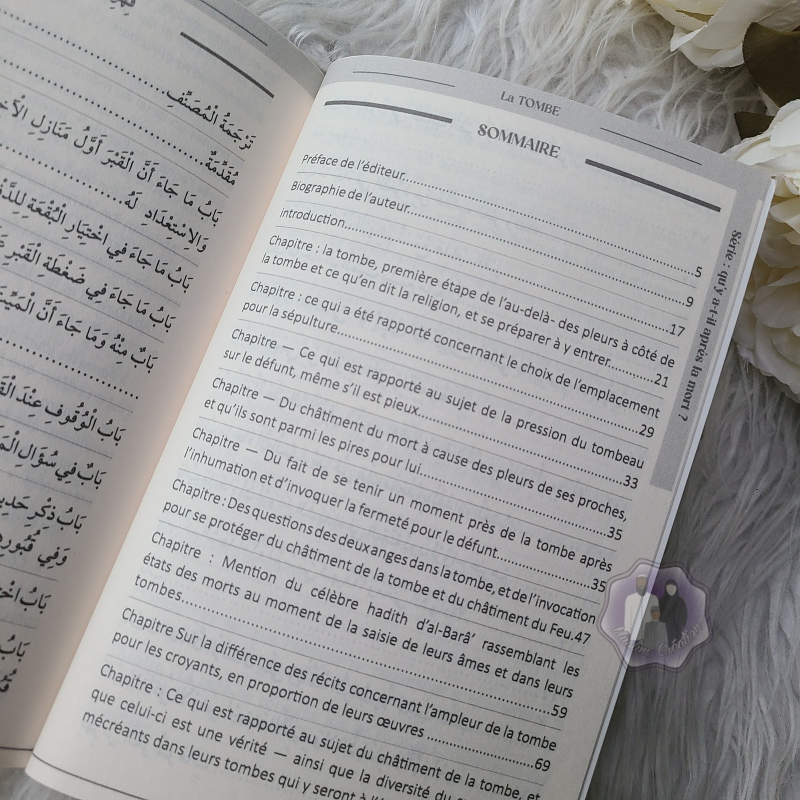 تَرْجَمَةُ الْمُصَنِّفِ
مُقَدِّمَةٌ
بَابُ مَا جَاءَ أَنَّ الْقَبْرَ أَوَّلُ مَنَازِلِ
وَالِاسْتِعْدَادِ لَهُ
بَابُ مَا جَاءَ فِي اخْتِيَارِ الْبُقْعَةِ
بَابُ مَا جَاءَ فِي ضَغْطَةِ الْقَبْرِ
بَابٌ مِنْهُ وَمَا جَاءَ أَنَّ الْمَيِّتَ
بَابُ الْوُقُوفِ عِنْدَ
بَابٌ فِي سُؤَالِ
بَابُ ذِكْرِ حَدِيثِ
وَفِي قُبُورِهِمْ
بَابُ
بَابُ
La TOMBE
SOMMAIRE
Préface de l'éditeur..........5
Biographie de l'auteur..........9
introduction..........17
Chapitre : la tombe, première étape de l'au-delà- des pleurs à côté de
la tombe et ce qu'en dit la religion, et se préparer à y entrer..........21
Chapitre : ce qui a été rapporté concernant le choix de l'emplacement
pour la sépulture..........29
Chapitre — Ce qui est rapporté au sujet de la pression du tombeau
sur le défunt, même s'il est pieux..........33
Chapitre — Du châtiment du mort à cause des pleurs de ses proches,
et qu'ils sont parmi les pires pour lui..........35
Chapitre — Du fait de se tenir un moment près de la tombe après
l'inhumation et d'invoquer la fermeté pour le défunt..........35
Chapitre : Des questions des deux anges dans la tombe, et de l'invocation
pour se protéger du châtiment de la tombe et du châtiment du Feu.47
Chapitre : Mention du célèbre hadith d'al-Barâ' rassemblant les
états des morts au moment de la saisie de leurs âmes et dans leurs
tombes..........59
Chapitre Sur la différence des récits concernant l'ampleur de la tombe
pour les croyants, en proportion de leurs œuvres ..........69
Chapitre : Ce qui est rapporté au sujet du châtiment de la tombe, et
que celui-ci est une vérité — ainsi que la diversité du
mécréants dans leurs tombes qui y seront à
Série : qu'y a-t-il après la mort ?